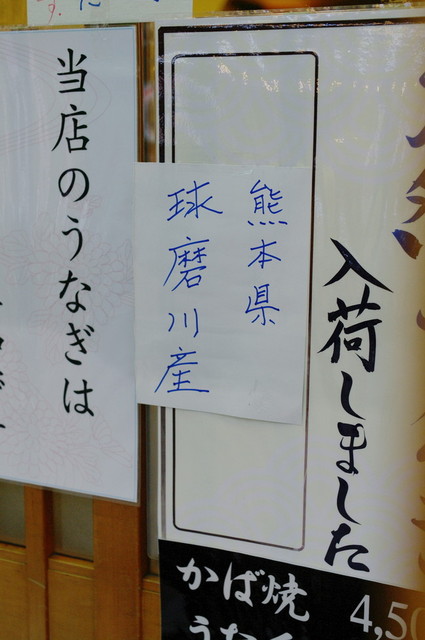 当店のうなぎは
熊本県
球磨川産
入荷しました
かば焼
4,50